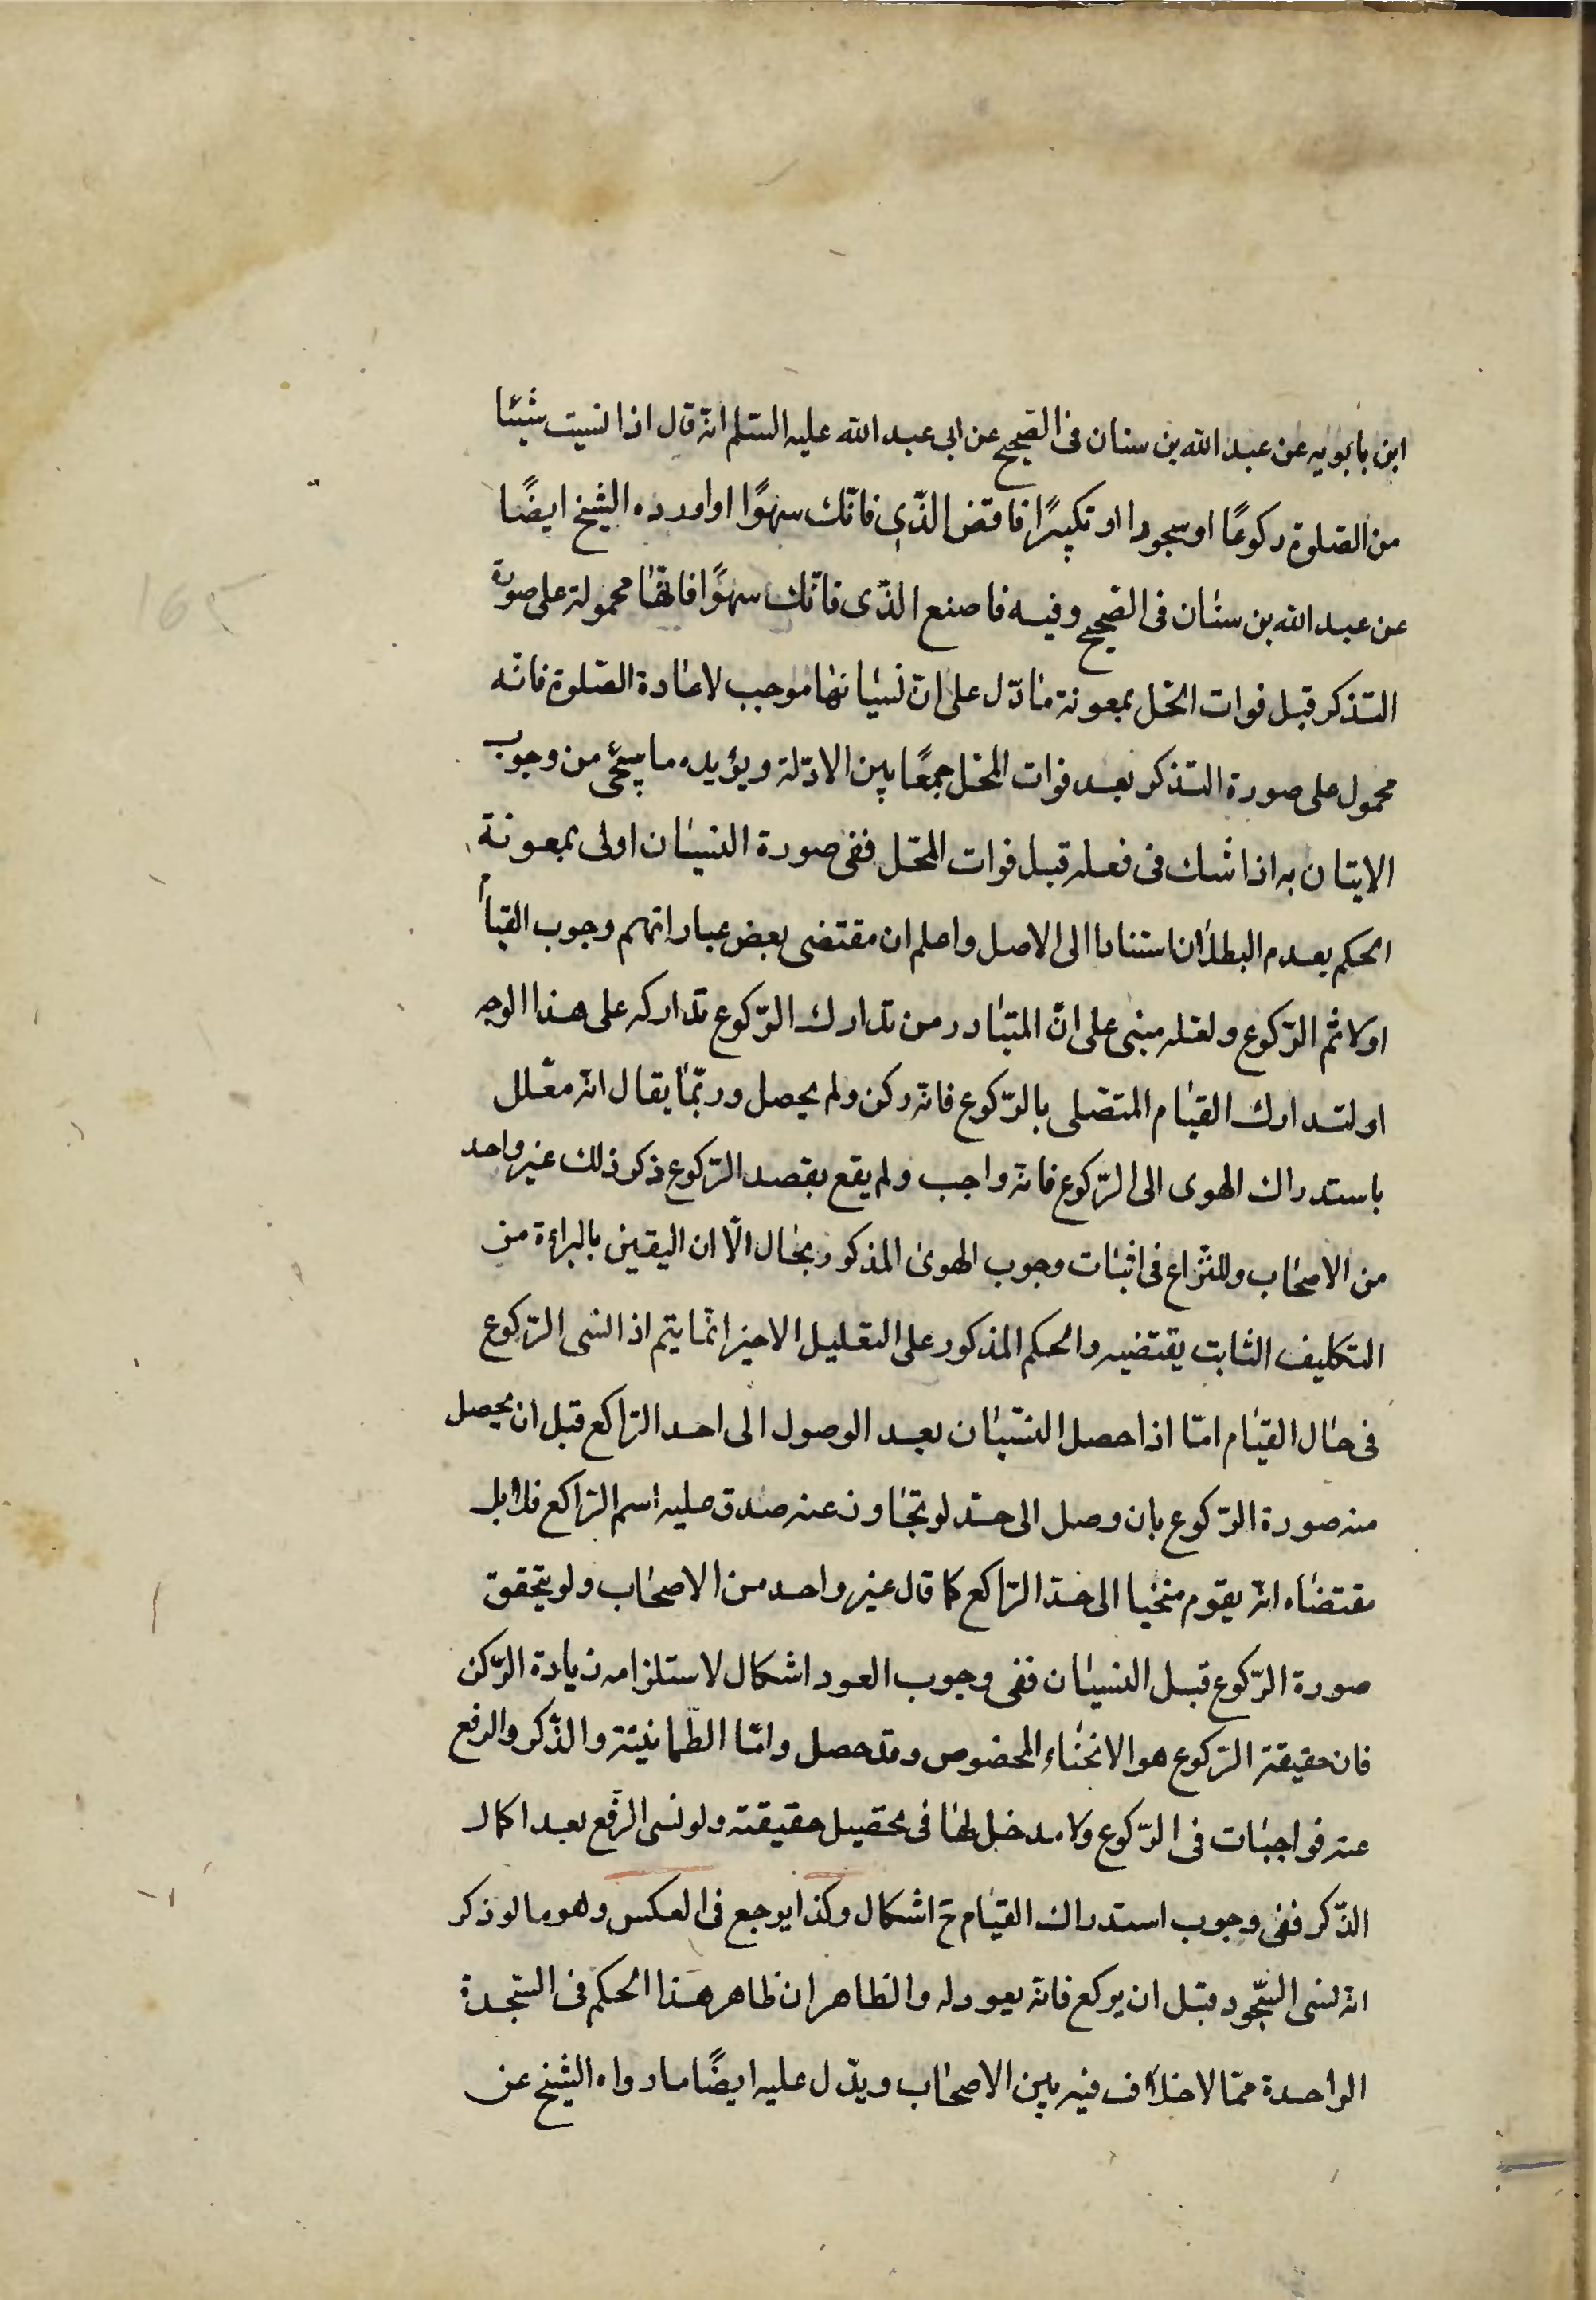 ابن بابويه عن عبد الله بن سنان فى الصحيح عن ابى عبد الله عليه السّلم انّه قال اذا نسيت شيئا
من الصّلوة ركوعًا او سجودا او تكبيرًا فاقض الذّى فاتك سهوًا او اورده الشيخ ايضًا
عن عبد الله بن سنان فى الصحيح وفيه فاصنع الذّى فاتك سهوًا فانّها محمولة على صورة
التذكر قبل فوات المحّل بمعونة ما دّل على انّ نسيانها موجب لاعادة الصّلوة فانّه
محمول على صورة التذكر بعد فوات المحّل جمعًا بين الادّلة ويؤيده ما سيجئ من وجوب
الايتان به اذا شك فى فعله قبل فوات المحّل ففى صورة النسيان اولى بمعونة
الحكم بعدم البطلان استنادا الى الاصل واعلم ان مقتضى بعض عباراتهم وجوب القيام
اولا ثم الرّكوع ولعّله مبنى على انّ المتبادر من تدارك الرّكوع تداركه على هذا الوجه
او لتدارك القيام المتصّل بالرّكوع فانّه ركن ولم يحصل وربّما يقال انّه معّلل
باستدراك الهوى الى الرّكوع فانّه واجب ولم يقع بقصد الرّكوع ذكر ذلك غير واحد
من الاصحاب وللنّزاع فى اثبات وجوب الهوى المذكور بحال الّا ان اليقين بالبراءة من
التكليف الثابت يقتضيه والحكم المذكور على التعليل الاخير انّما يتم اذا نسى الرّكوع
فى حال القيام امّا اذا حصل النسّيان بعد الوصول الى احد الرّاكع قبل ان يحصل
منه صورة الرّكوع بان وصل الى حدّ لو تجاوز عنه صدق عليه اسم الرّاكع فلا بل
مقتضاه انّه يقوم منحنيا الى حدّ الرّاكع كما قال غير واحد من الاصحاب ولو يتحقق
صورة الرّكوع قبل النسيان ففى وجوب العود اشكال لاستلزامه زيادة الرّكن
فان حقيقة الرّكوع هو الانحناء المخصوص وقد حصل وامّا الطّمانينة والذّكر والرفع
عنه فواجبات فى الرّكوع ولا مدخل لها فى تحصيل حقيقته ولو نسى الرّفع بعد اكمال
الذّكر ففى وجوب استدراك القيام ح اشكال وكذا يرجع فى العكس وهو ما لو ذكر
انّه نسى السّجود قبل ان يركع فانّه يعود له والظاهر ان ظاهر هذا الحكم فى السّجدة
الواحدة ممّا لا خلاف فيه بين الاصحاب ويدّل عليه ايضًا ما رواه الشيخ عن